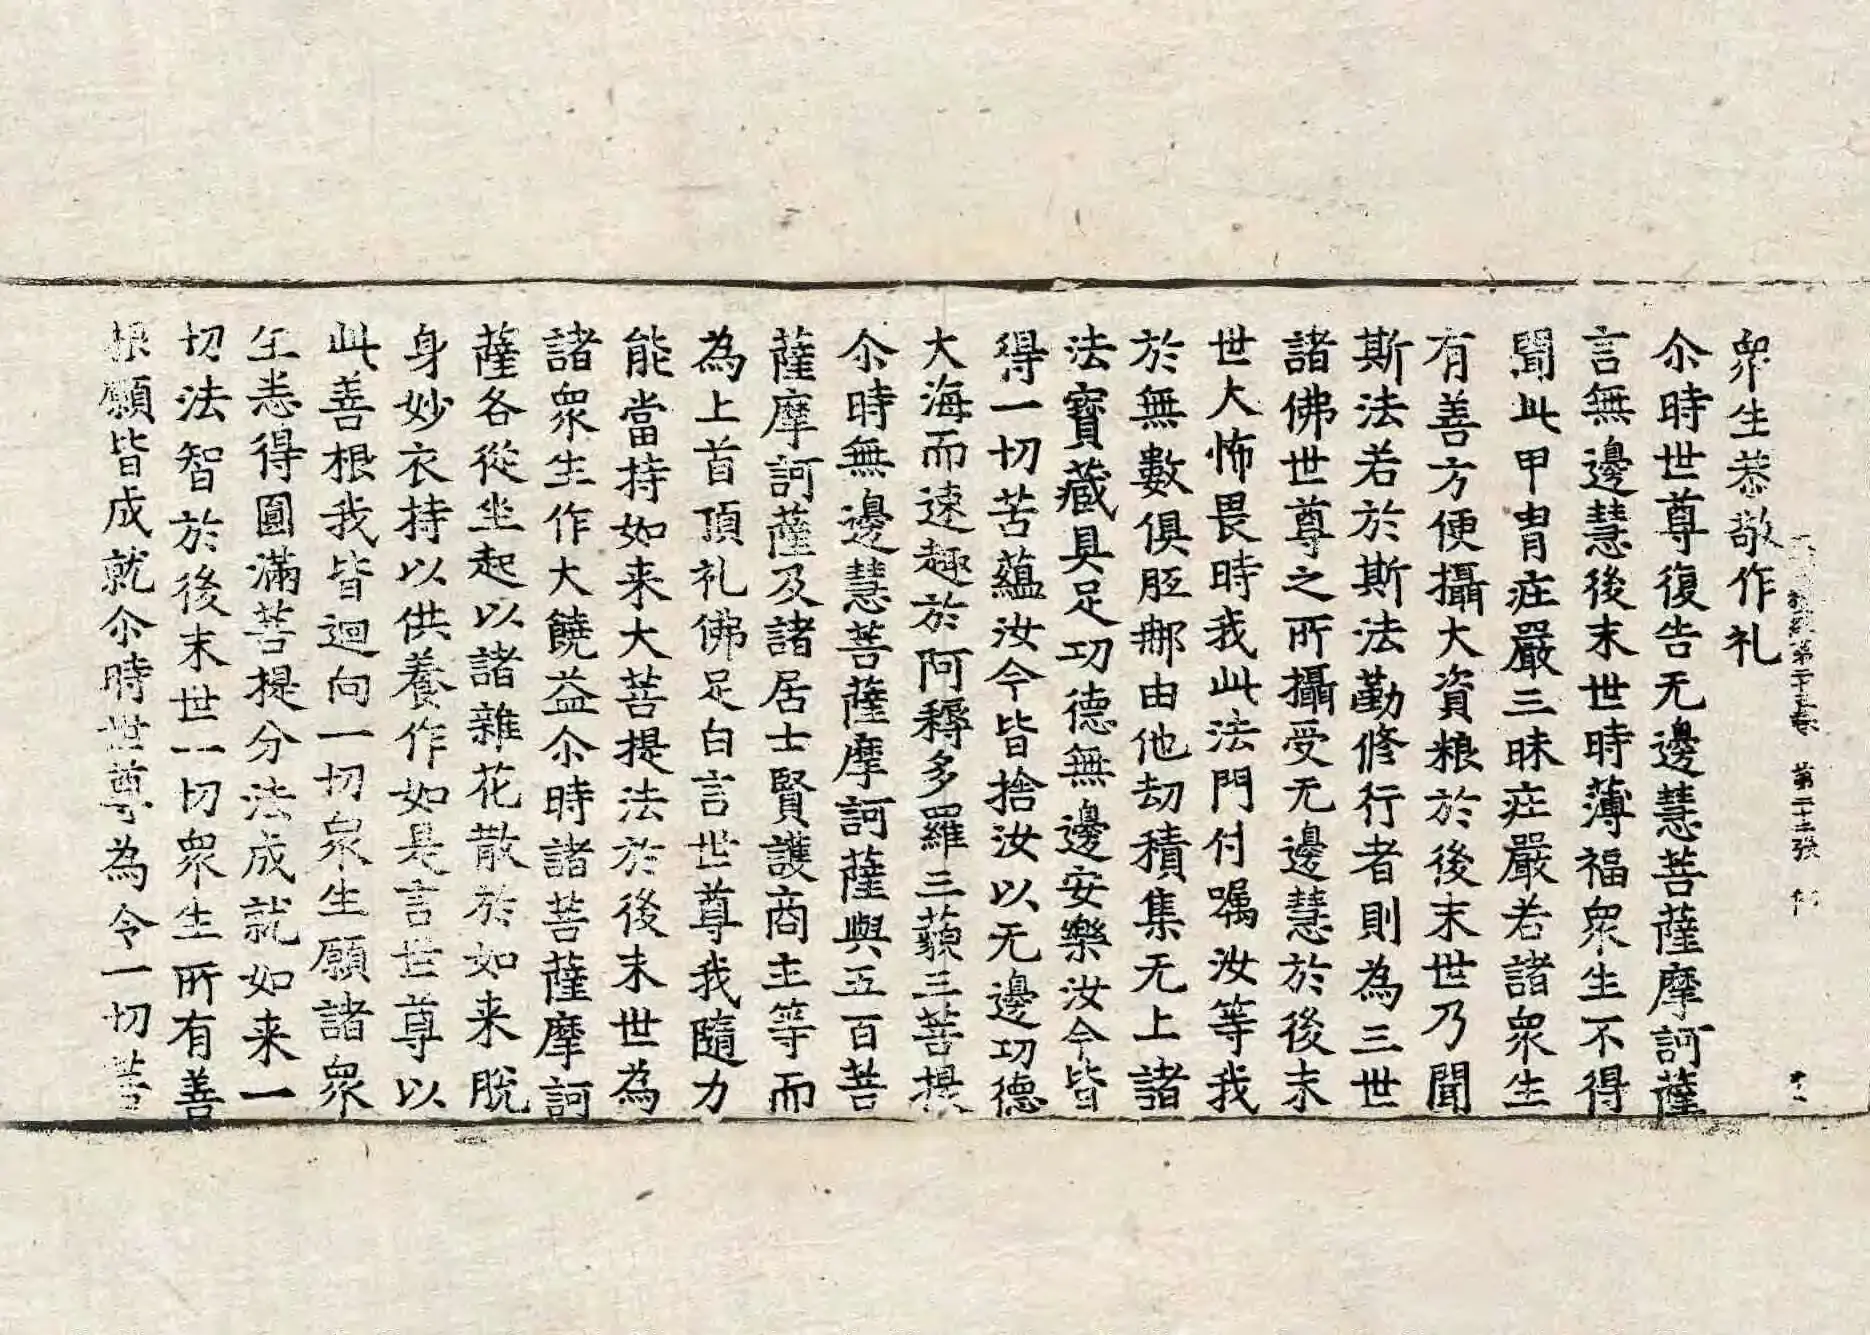 經第二十五卷 第二十二張
衆生恭敬作礼
尒時世尊復告无邊慧菩薩摩訶薩
言無邊慧後末世時薄福衆生不得
聞此甲胄庄嚴三昧庄嚴若諸衆生
有善方便攝大資粮於後末世乃聞
斯法若於斯法勤修行者則為三世
諸佛世尊之所攝受无邊慧於後末
世大怖畏時我此法門付囑汝等我
於無數俱胝那由他劫積集无上諸
法寶藏具足功德無邊安樂汝今皆
得一切苦蘊汝今皆捨汝以无邊功德
大海而速趣於阿耨多羅三藐三菩提
尒時無邊慧菩薩摩訶薩與五百菩
薩摩訶薩及諸居士賢護商主等而
為上首頂礼佛足白言世尊我隨力
能當持如来大菩提法於後末世為
諸衆生作大饒益尒時諸菩薩摩訶
薩各從坐起以諸雜花散於如来脫
身妙衣持以供養作如是言世尊以
此善根我皆迴向一切衆生願諸衆
生悉得圓滿菩提分法成就如来一
切法智於後末世一切衆生所有善
根願皆成就尒時世尊為令一切菩